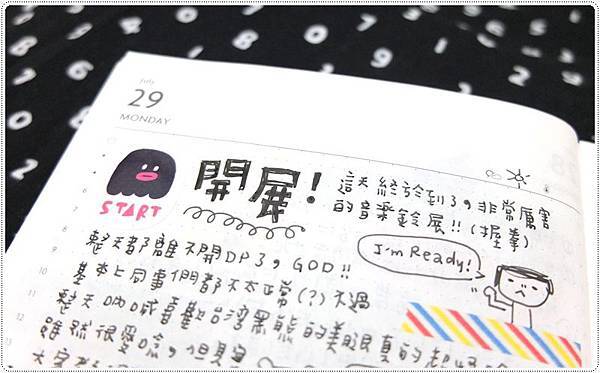 July
29
MONDAY
START
開展!
這天終於到了,非常厲害
的音樂鈴展!!(握拳)
I'm Ready!
整天都離不開DP了,GOD!!
基本上同事們都不太正常(?)不過
整天吶喊喜歡台湾黑熊的美眼真的超好
雖然很愛唸,但其實
大家
10
11
12